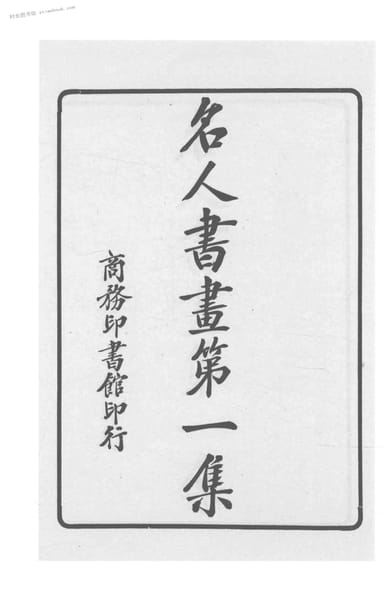 名人書畫第一集
商務印書館印行